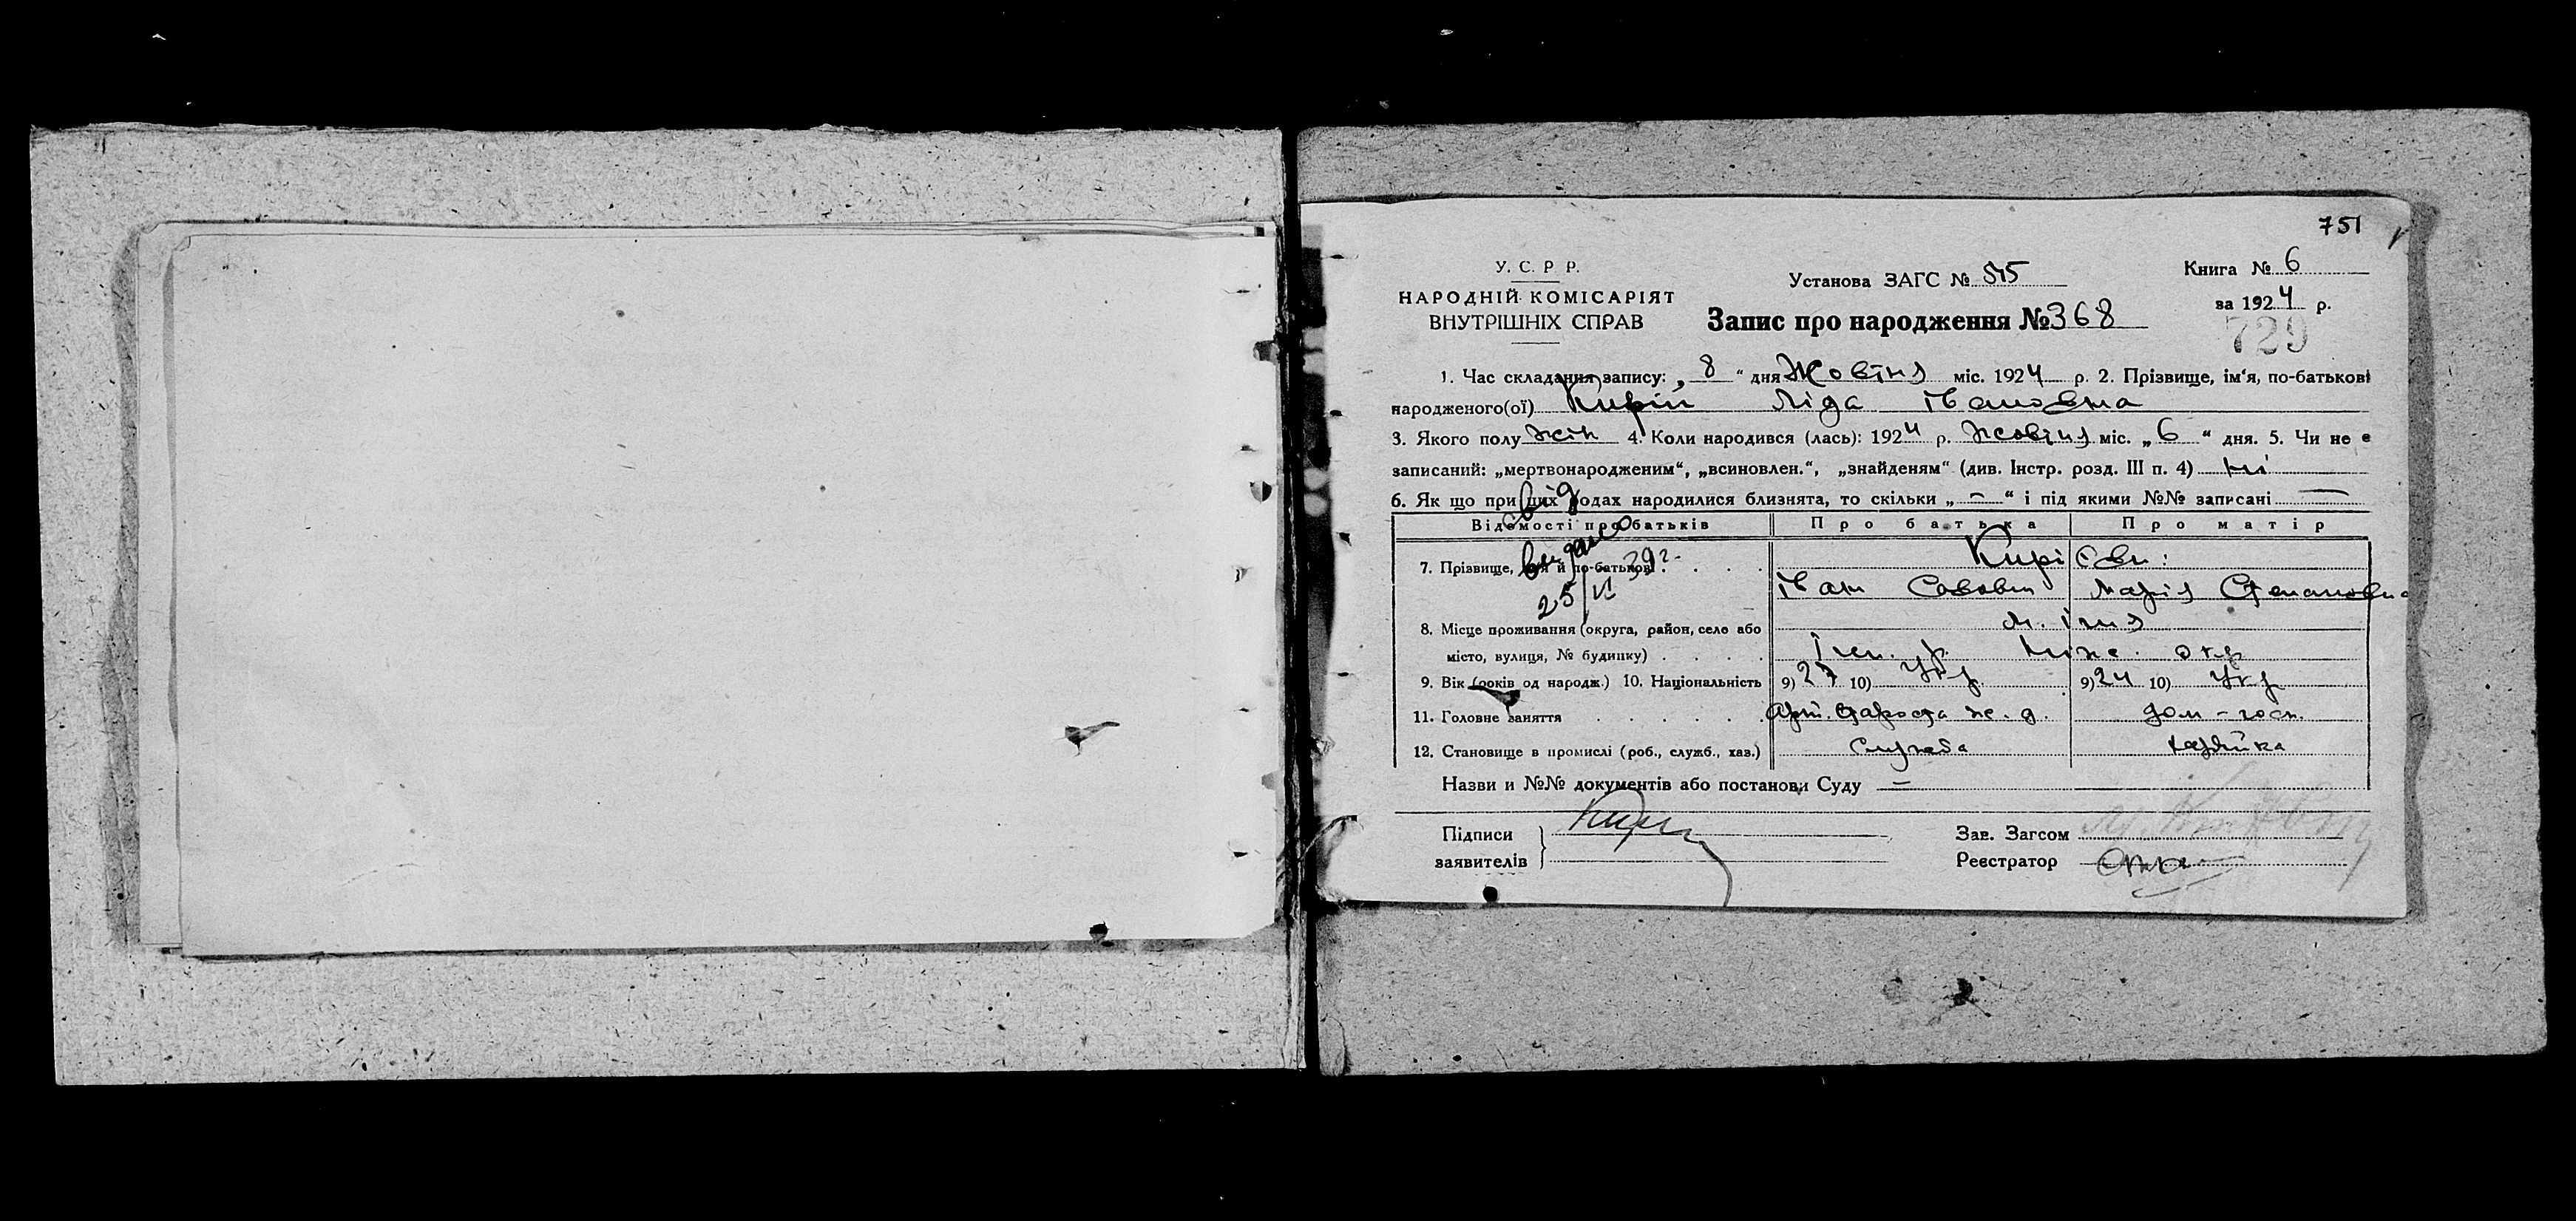 751
У. С. Р. Р.
НАРОДНІЙ КОМІСАРІЯТ
ВНУТРІШНІХ СПРАВ
Установа ЗАГС № 515
Запис про народження № 368
Книга № 6
за 1924 р.
729
1. Час складання запису: „ 8 “ дня Жовтня міс. 1924 р. 2. Прізвище, ім'я, по-батькові
народженого(ої) Кирій Ліда Івановна
3. Якого полу жін 4. Коли народився (лась): 1924 р. жовтня міс. „ 6 “ дня. 5. Чи не є
записаний: „мертвонародженим“, „всиновлен.“, „знайденям“ (див. Інстр. розд. III п. 4) ні
6. Як що при цих родах народилися близнята, то скільки „ – “ і під якими №№ записані —
Відомості про батьків Про батька Про матір
видано
25/VI 39 г.
7. Прізвище, ім'я й по-батькові . . . . Кирієви:
Іван Савович Марія Степановна
8. Місце проживання (округа, район, село або м. Ічня
місто, вулиця, № будинку) . . . . Ічен. р. Ніже. окр
9. Вік (років од народж.) 10. Національність 9) 27 10) Укр. 9) 24 10) Укр
11. Головне заняття . . . . . . Арт. Староста ж. д. дом – госп.
12. Становище в промислі (роб., служб., хаз.) Служба хазяйка
Назви и №№ документів або постанови Суду —
Підписи
заявителів
Кирій
Зав. Загсом
Реєстратор